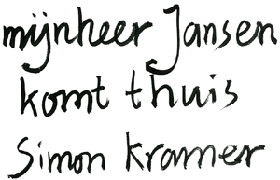 mijnheer Jansen
komt thuis
Simon Kramer